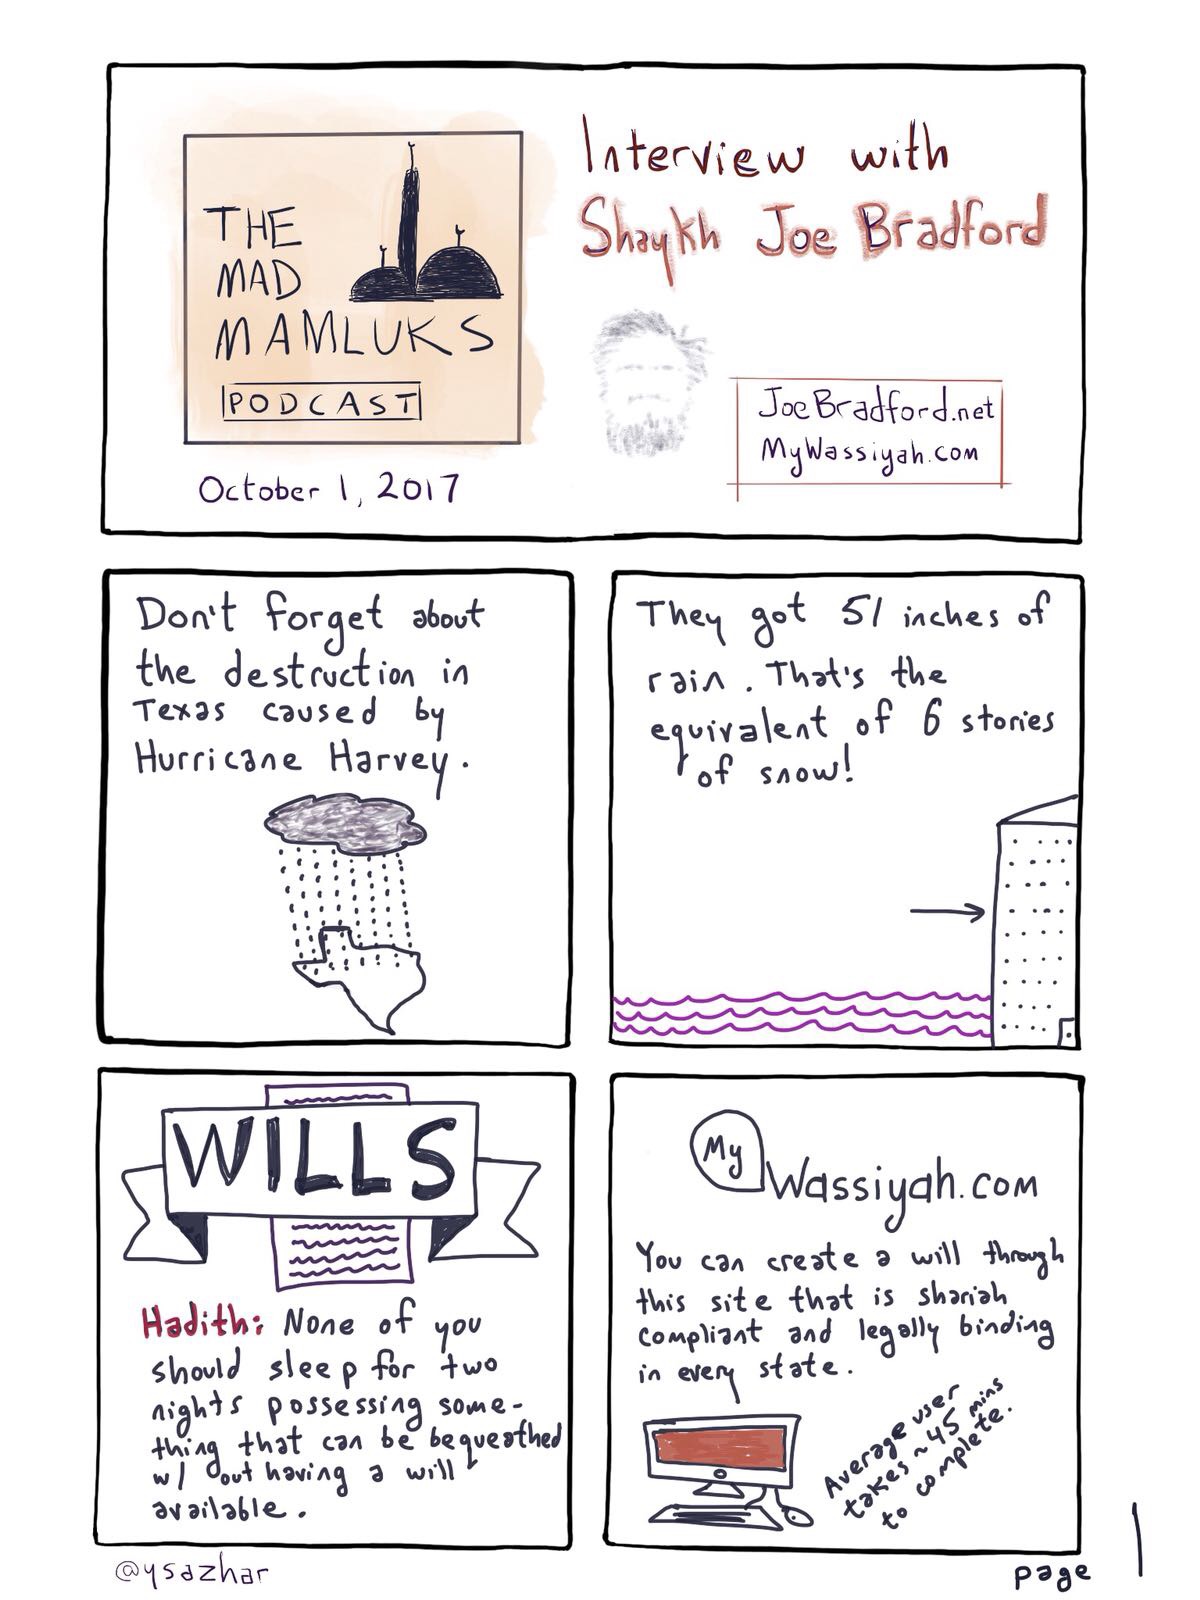 THE
MAD
MAMLUKS
PODCAST
October 1, 2017
Interview with
Shaykh Joe Bradford
JoeBradford.net
MyWassiyah.com
Don't forget about
the destruction in
Texas caused by
Hurricane Harvey.
They got 51 inches of
rain. That's the
equivalent of 6 stories
of snow!
WILLS
Hadith: None of you
should sleep for two
nights possessing some-
thing that can be bequeathed
w/out having a will
available.
My
Wassiyah.com
You can create a will through
this site that is shariah
compliant and legally binding
in every state.
Average user
takes ~45 mins
to complete.
@ysazhar
page 1